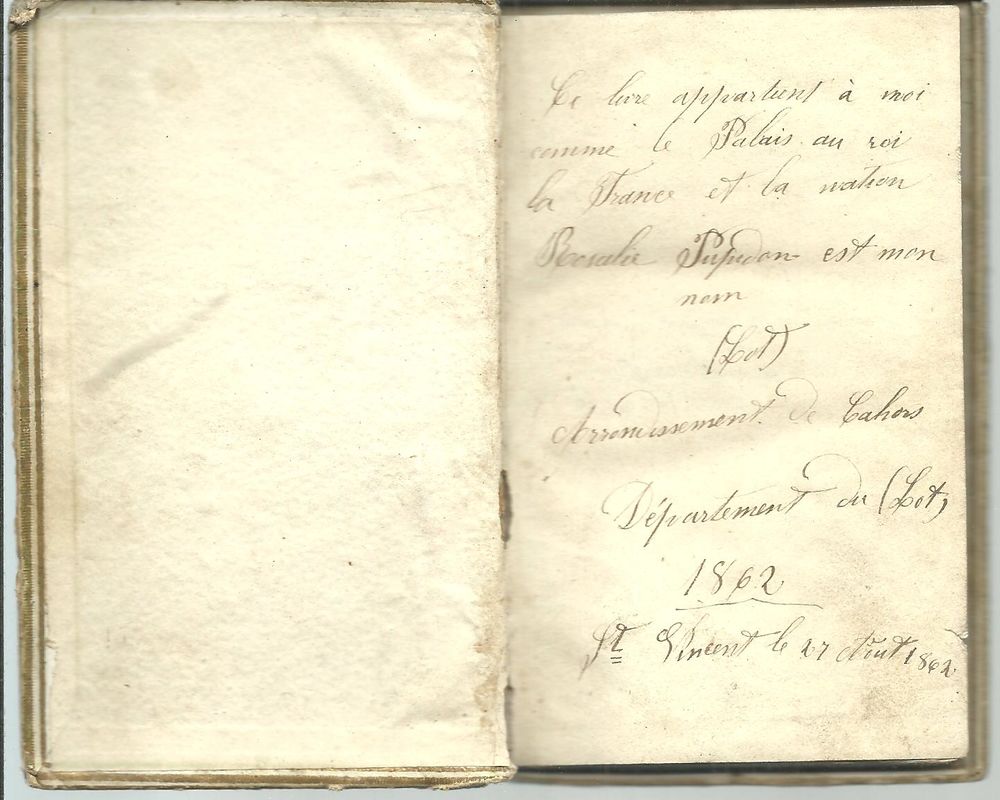 Ce livre appartient à moi
comme le Palais au roi
la France et la nation
Rosalie est mon
nom
(Lot)
Arrondissement de Cahors
Département du (Lot)
1862
St Vincent le 27 Aout 1862